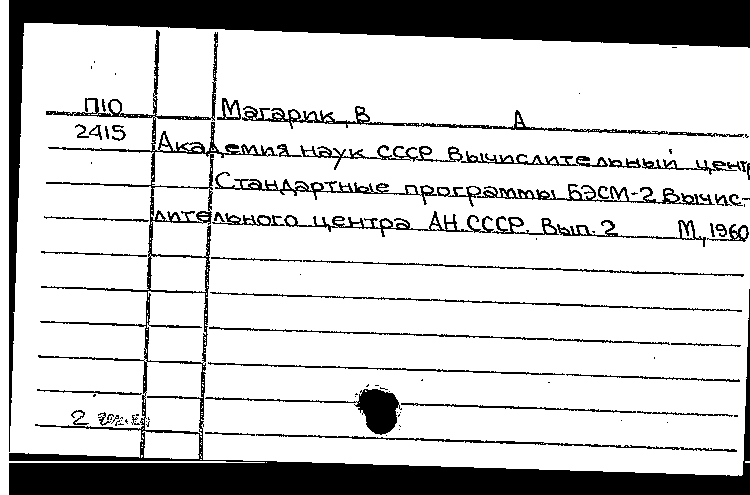 П10 Магарик, В А
2415 Академия наук СССР Вычислительный центр
Стандартные программы БЭСМ-2 Вычис-
лительного центра АН.СССР. Вып. 2 М., 1960
2